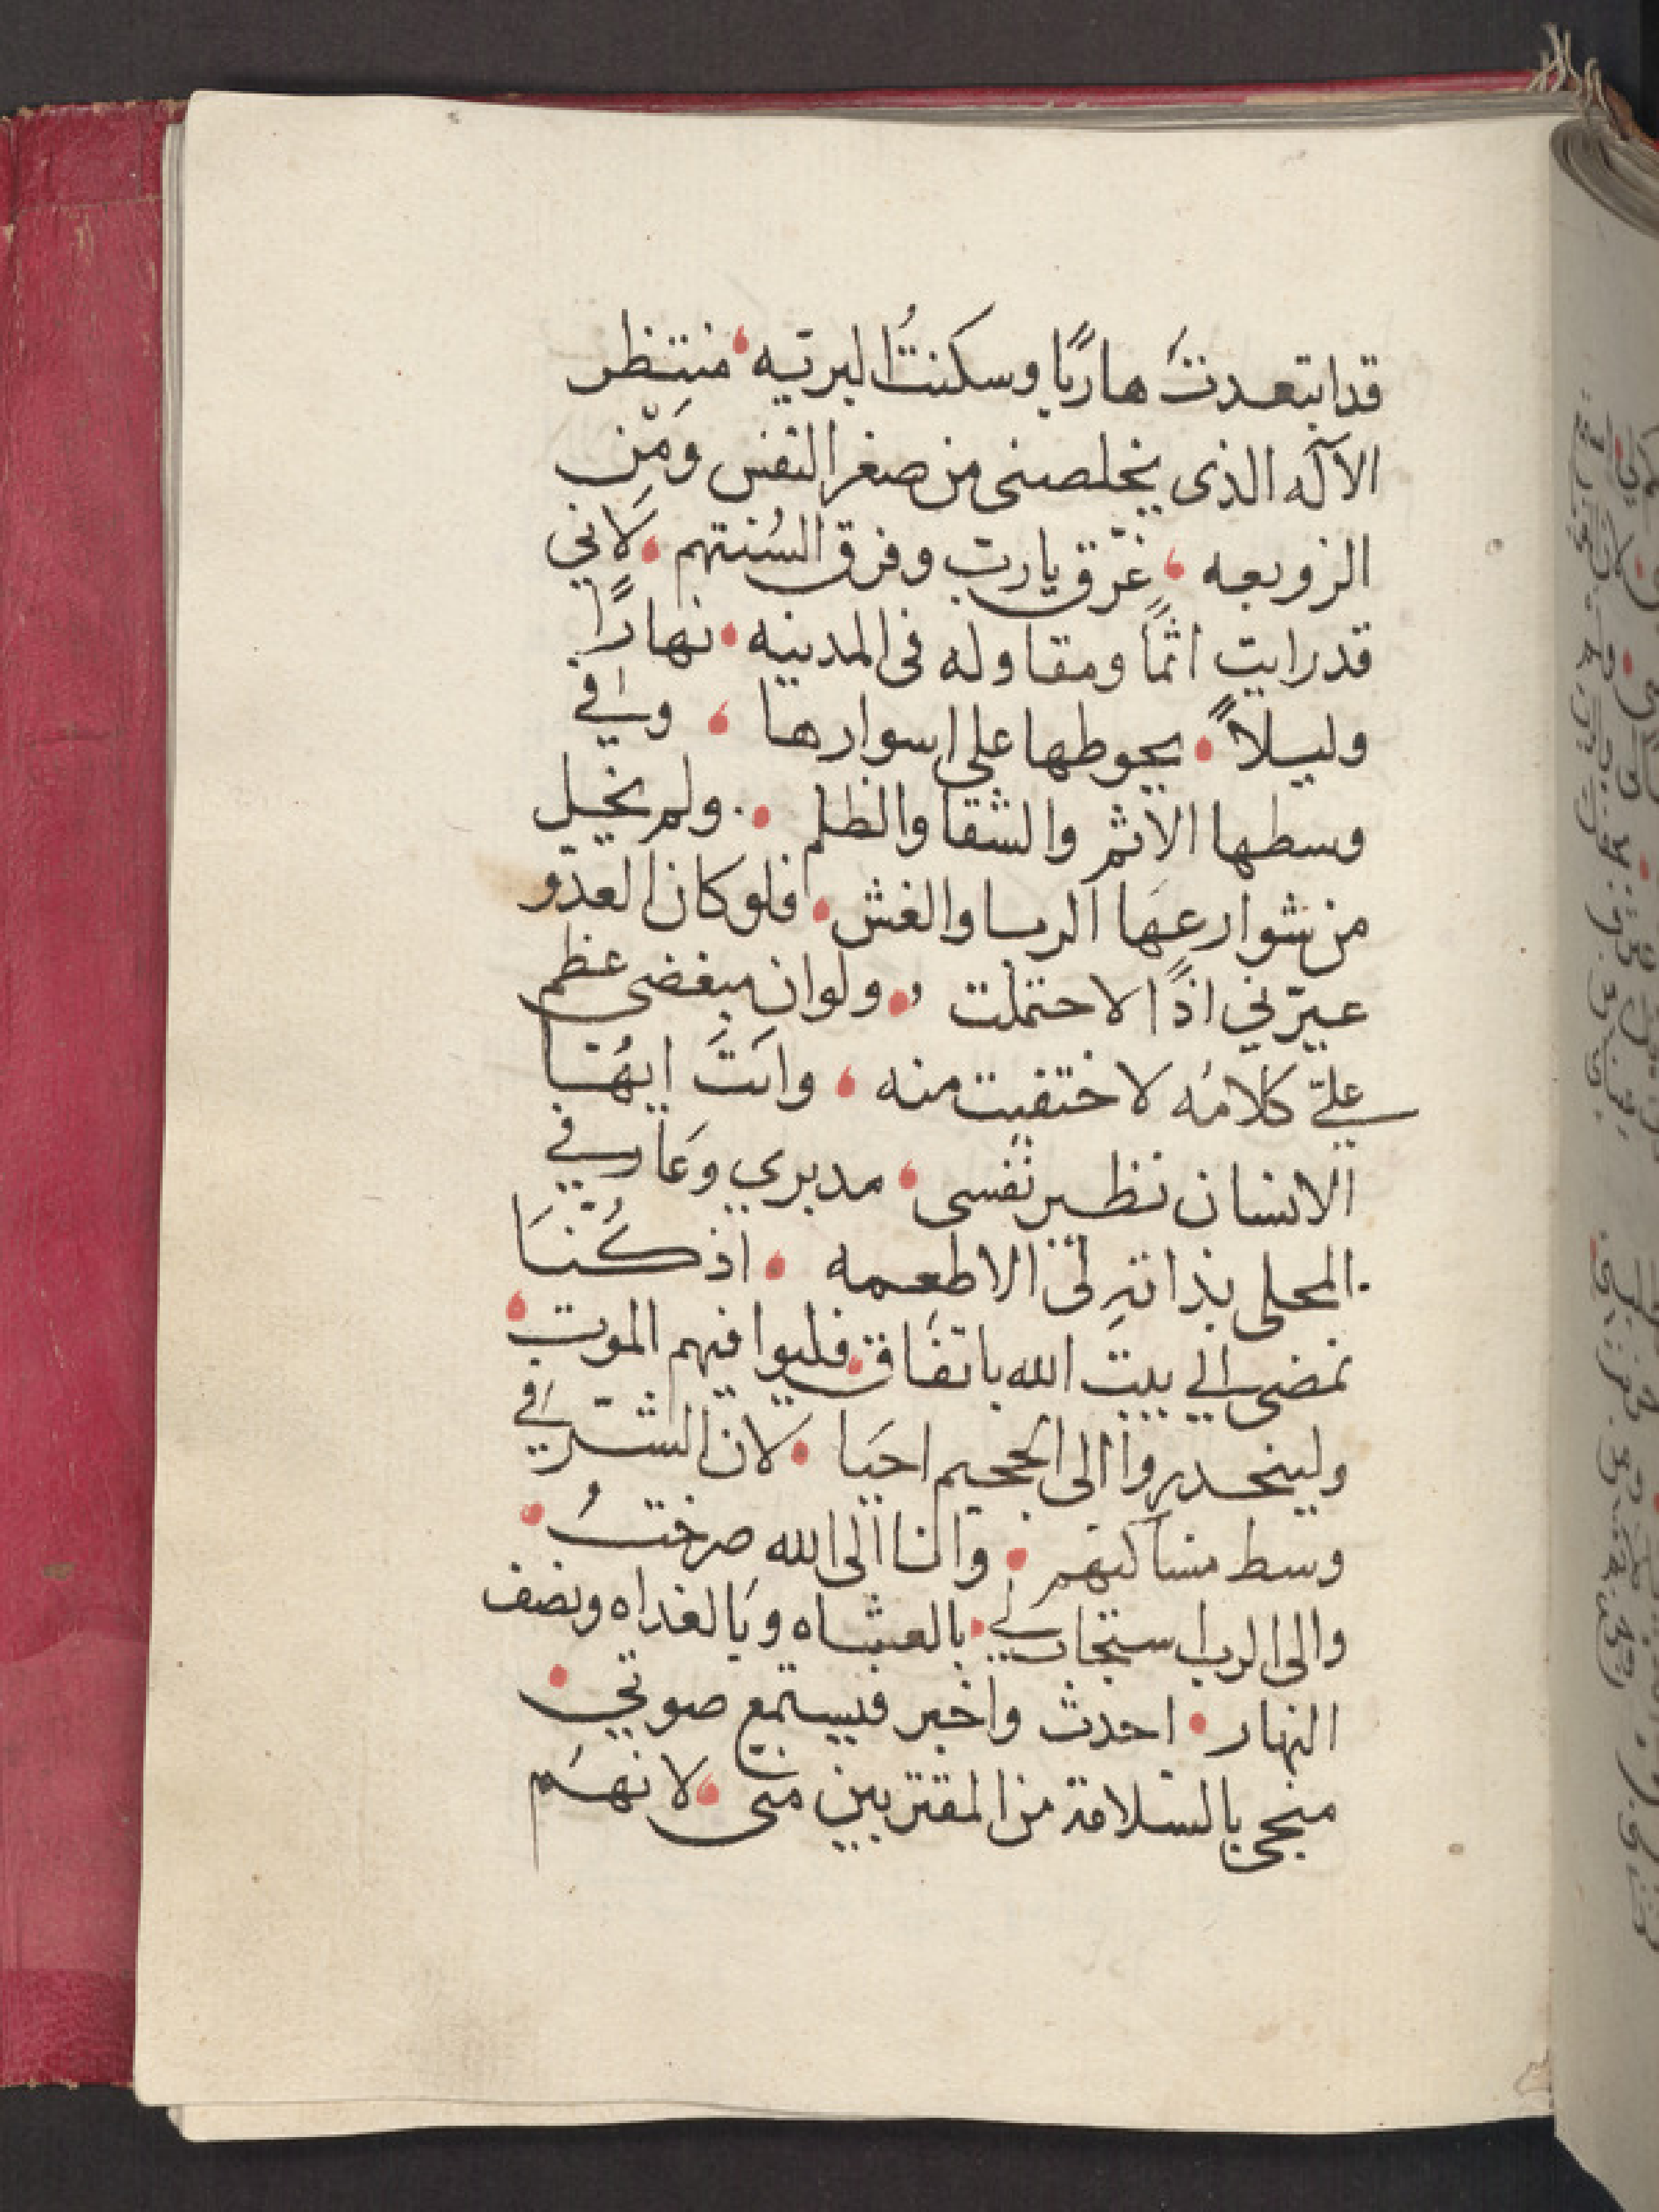 قد ابتعدتُ هاربًا وسكنتُ البريّه، منتظر
الآله الذى يخلصنى من صغر النفس ومِن
الزوبعه، غرّق يا ربّ وفرق السُنتهم. لاني
قد رايت اثمًا ومقاوله فى المدينه. نهارًا
وليلاً. يحوطها على اسوارها، وفي
وسطها الاثم والشقا والظلم. ولم يخيل
من شوارعها الربا والغش. فلو كان العدّو
عيرّني اذًا لاحتملت. ولو ان مبغضى عظم
عليّ كلامُه لاختفيت منه، وانتَ ايهُا
الانسان نظير نفسى، مدبري وعارفي
المحلى بذاتهِ لىَ الاطعمه. اذ كُنّا
نمضى الي بيت الله باتفاق. فليوافيهم الموت،
ولينحدروا الى الجحيم احيا. لان الشرّ في
وسط مساكنهم. وانا الى الله صرختُ.
والى الرب استجاب لي. بالعشاه وبالغداه ونصف
النهار. احدث واخبر فيستمع صوتي.
منجى بالسلامة من المقتربين منى، لانهم